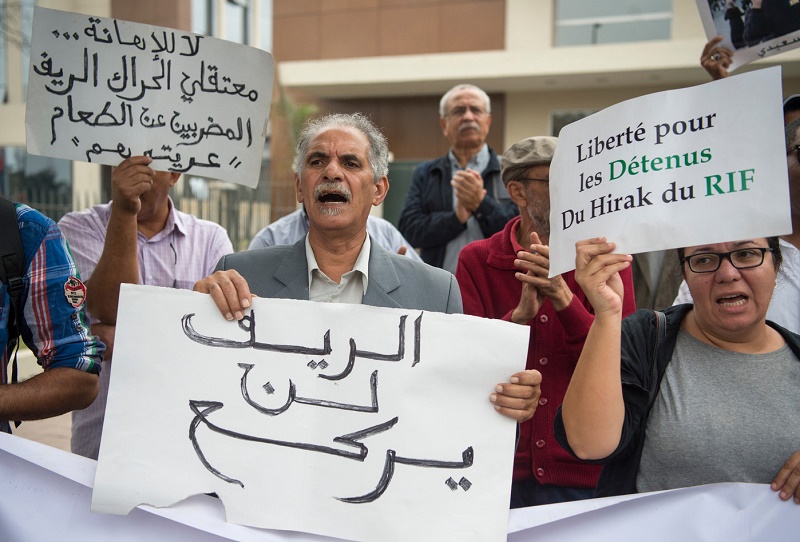 لا للإهانة...
معتقلي الحراك الريف
المضربين عن الطعام
"عريتو بهم"
الريف
لن
يركع
Liberté pour
les Détenus
Du Hirak du RIF
سعيدي